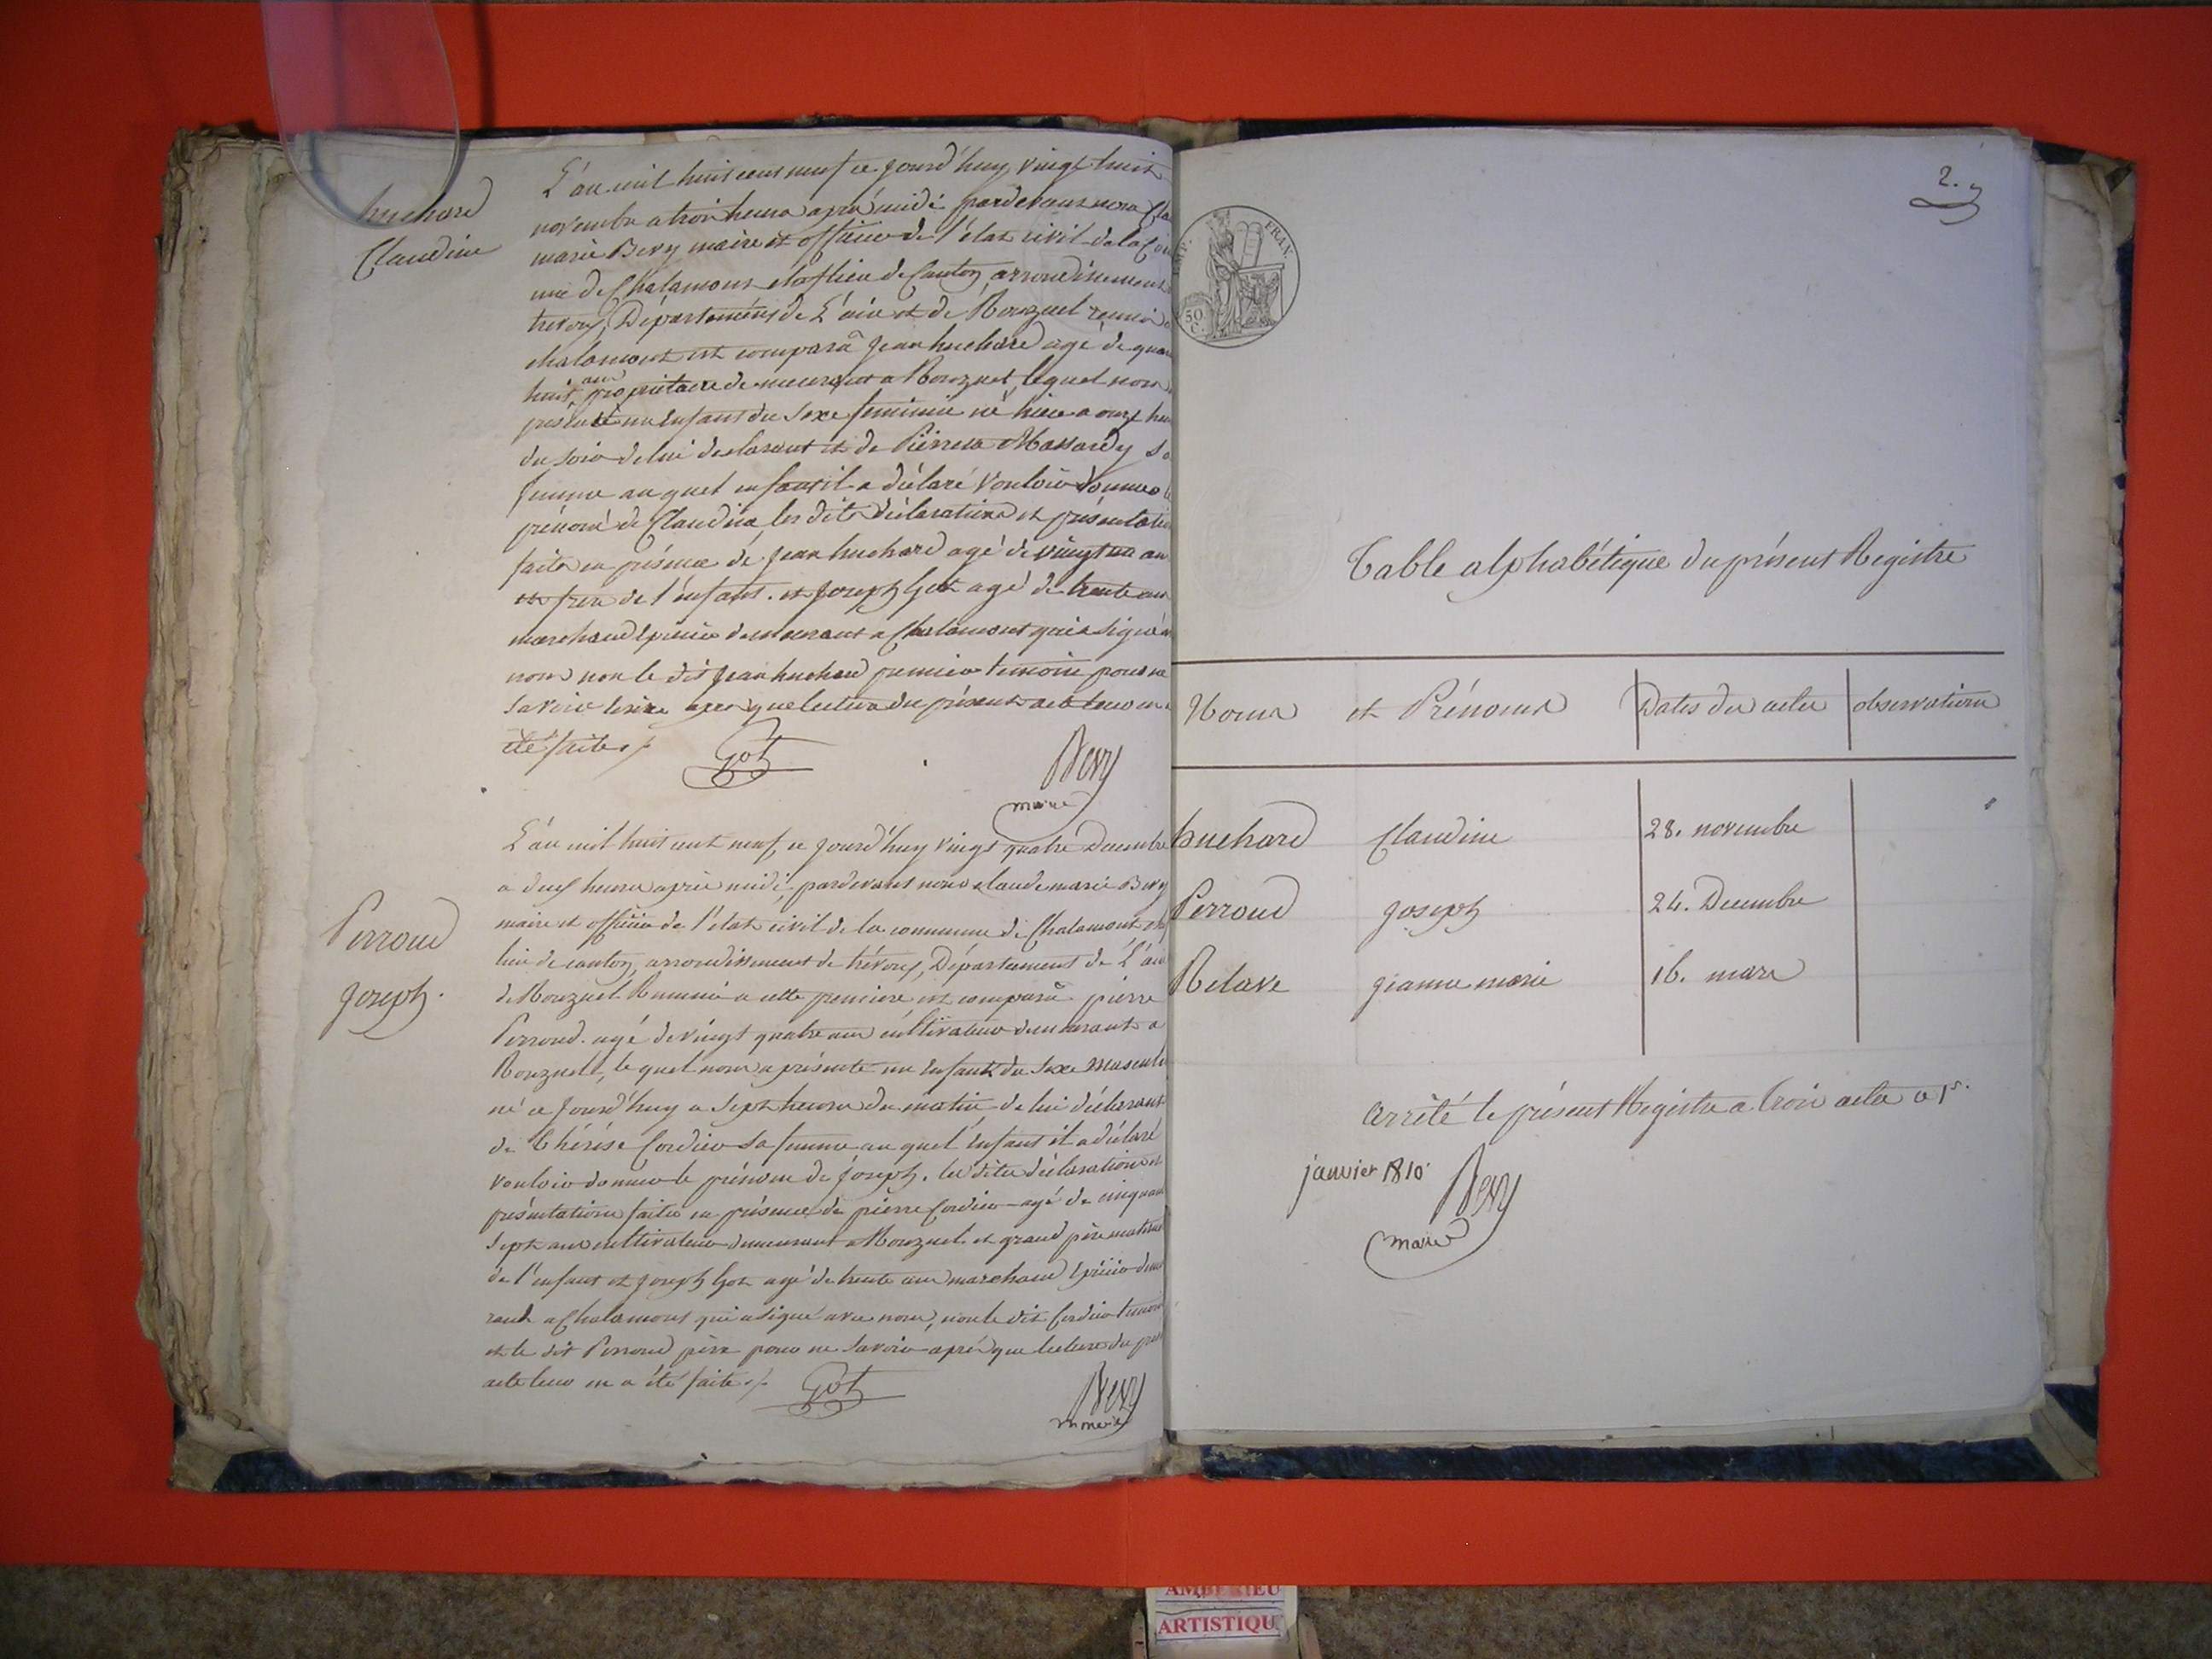 huchard
Claudine
L'an mil huit cent neuf ce jourd'huy vingt huit
novembre a trois heures après midi pardevant nous Cla
marie Bevy maire et officier de l'état civil de la Com
mune de Chalamont chef lieu de Canton arrondissement
trevoux, Département de L'ain et de Ronzuel reuni a
chalamont est comparu jean huchard agé de quar
huit ans propriétaire demeurant a Ronzuel, lequel nous
présenté un enfant du sexe feminin né hier a onze heu
du soir de lui déclarant et de Pierrette Massardy sa
femme auquel enfant il a déclaré vouloir donner le
prénom de Claudine les dites déclaration et présentation
faites en présence de jean huchard agé de vingt un an
et frere de l'enfant. et joseph Got agé de trente ans
marchand Epicier demeurant a Chalamont qui a signé av
nous non le dit jean huchard premier temoin pour ne
savoir écrire après que lecture du présent acte leur en a
été faite ./.
Got
Bevy
maire
Perroud
joseph.
L'an mil huit cent neuf, ce jourd'huy vingt quatre Decembre
a deux heures après midi, pardevant nous claude marie Bevy
maire et officier de l'état civil de la commune de Chalamont chef
lieu de canton, arrondissement de trévoux, Département de L'ain
de Ronzuel Reunie a cette premiere est comparu pierre
Perroud. agé de vingt quatre ans cultivateur demeurant a
Ronzuel, le quel nous a présenté un enfant du sexe masculin
né ce jourd'huy a sept heures du matin de lui déclarant
de thérése Cordier sa femme au quel enfant il a déclaré
vouloir donner le prénom de joseph. les dites déclaration et
présentation faites en présence de pierre Cordier agé de cinquan
sept ans cultivateur demeurant a Ronzuel. et grand père maternel
de l'enfant et joseph Got agé de trente ans marchand Epicier deme
rant a Chalamont qui a signé avec nous, non le dit Cordier temoin
et le dit Perroud père pour ne savoir après que lecture du prés
acte leur en a été faite ./.
Got
Bevy
maire
2.
FRAN.
50
C.
Table alphabétique du présent Registre
Noms et Prénoms Dates des actes observations
huchard Claudine 28. novembre
Perroud joseph 24. Decembre
Relave jeanne marie 16. mars
arrêté le présent Registre a trois actes ce 1er.
janvier 1810.
Bevy
maire
AMBERIEU
ARTISTIQU